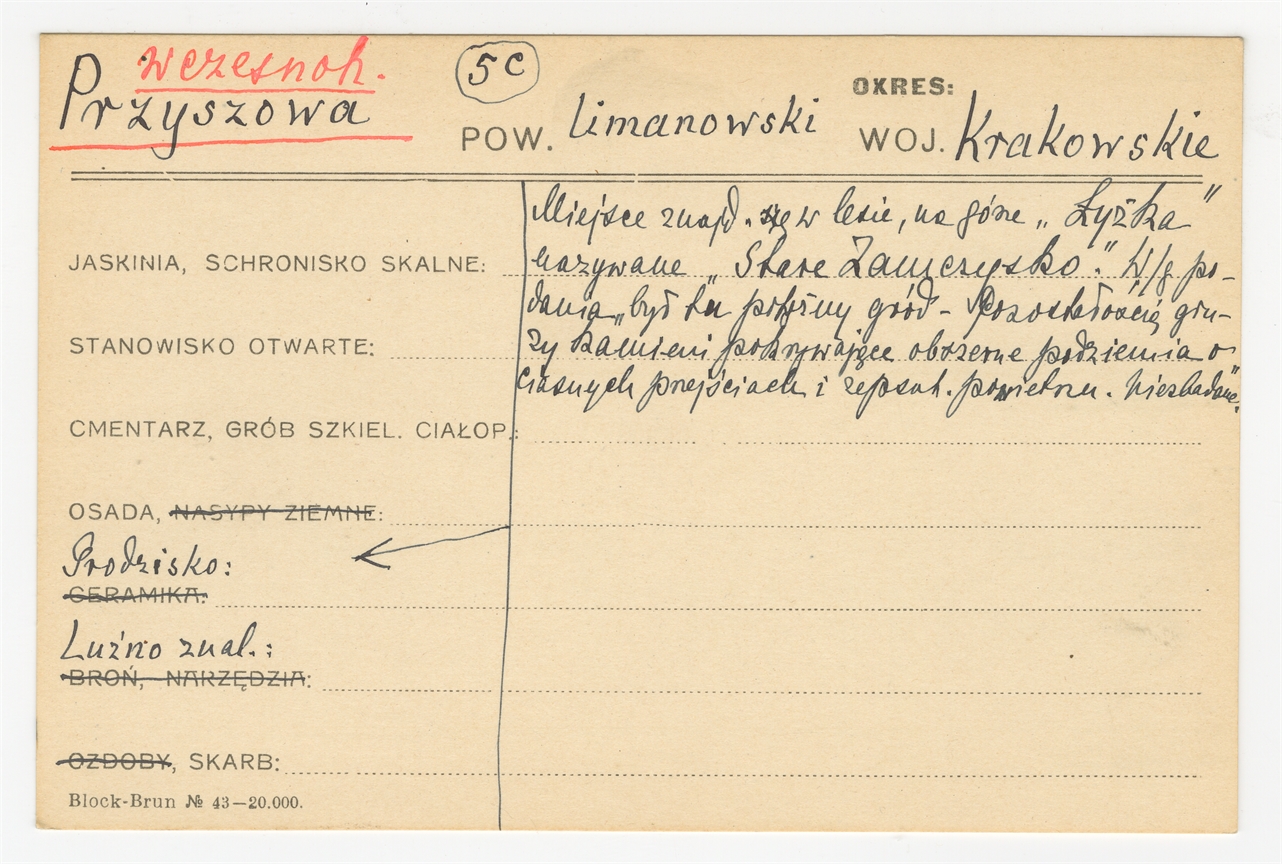 wczesnoh.
Przyszowa
5c
POW. limanowski
OKRES:
WOJ. Krakowskie
Miejsce znajd. się w lesie, na górze „Łyżka"
nazywane „Stare Zamczysko". W/g po-
dania „był tu potężny gród - Pozostałością gru-
zy kamieni pokrywające obszerne podziemia o
ciasnych przejściach i zepsut. powietrzu. Niezbadane".
JASKINIA, SCHRONISKO SKALNE:
STANOWISKO OTWARTE:
CMENTARZ, GRÓB SZKIEL. CIAŁOP.:
OSADA, NASYPY ZIEMNE:
Grodzisko:
CERAMIKA:
Luźno znal.:
BROŃ, NARZĘDZIA:
OZDOBY, SKARB:
Block-Brun № 43—20.000.